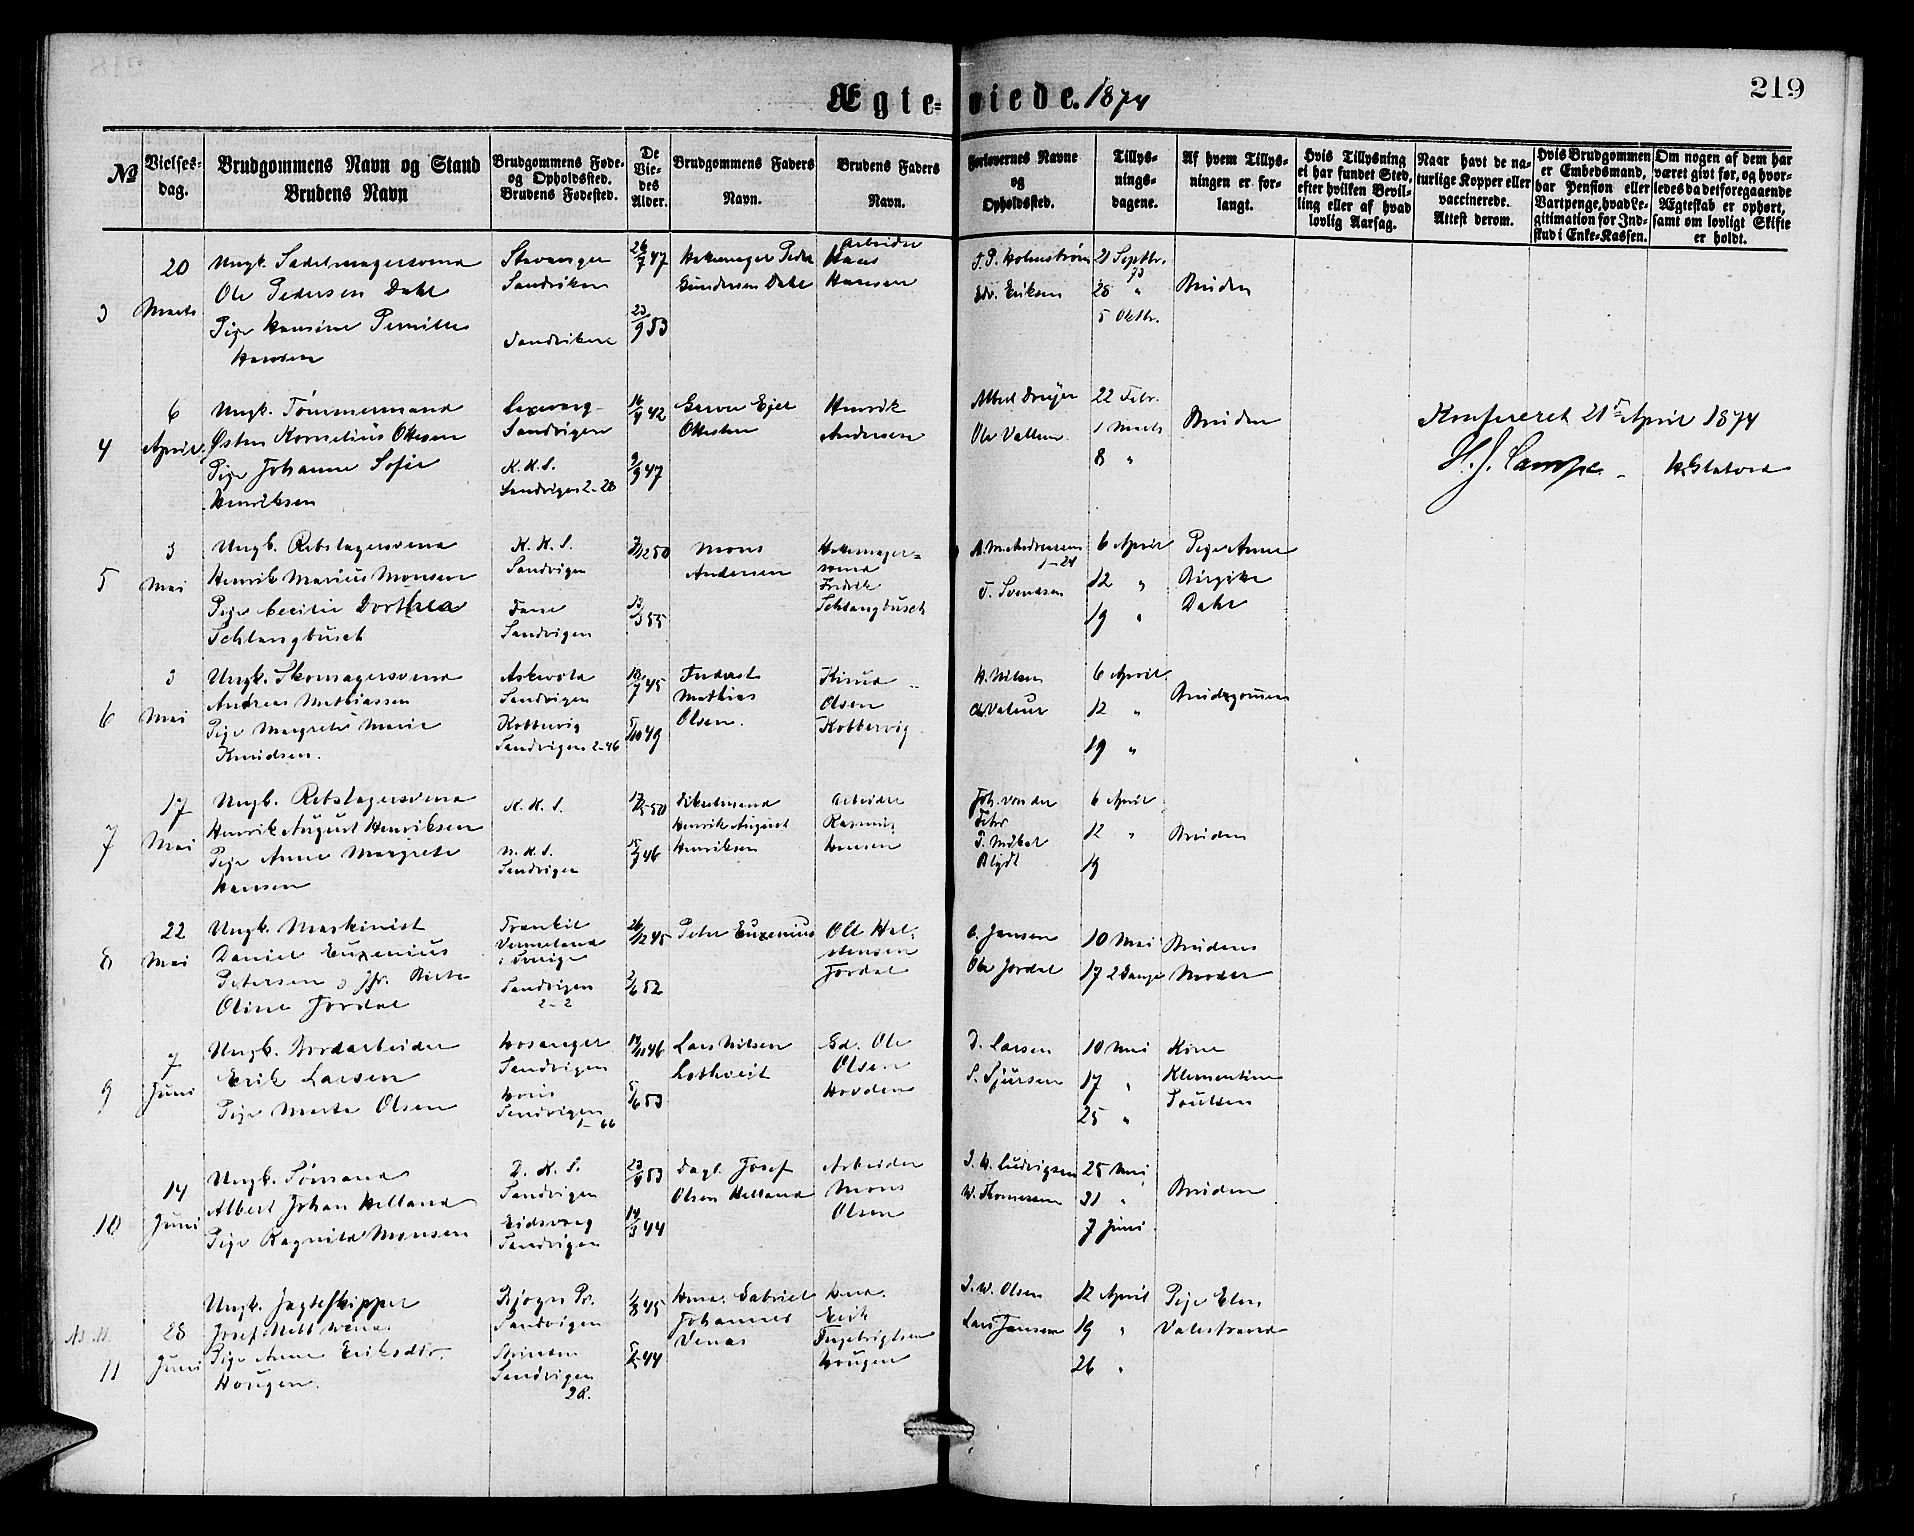 219
Ægteviede. 1874
№
Vielses-
dag.
Brudgommens Navn og Stand
Brudens Navn
Brudgommens Føde-
og Opholdssted.
Brudens Fødested.
De
Vie-
des
Alder.
Brudgommens Faders
Navn.
Brudens Faders
Navn.
Forlovernes Navne
og
Opholdssted.
Tillys-
nings-
dagene.
Af hvem Tillys-
ningen er for-
langt.
Hvis Tillysning
ei har fundet Sted,
efter hvilken Bevil-
ling eller af hvad
lovlig Aarsag.
Naar havt de na-
turlige Kopper eller
vaccinerede.
Attest derom.
Hvis Brudgommen
er Embedsmand,
har Pension eller
Vartpenge, hvad Le-
gitimation for Ind-
skud i Enke-Kassen.
Om nogen af dem har
været givt før, og hvor-
ledes da det foregaaende
Ægteskab er ophørt,
samt om lovligt Skifte
er holdt.
3
20
Marts
Ungk. Sadelmagersvend
Ole Pedersen Dahl
Pige Hansine Pernille
Hansen
Stavanger
Sandviken
Sandviken
26/7 47
23/9 53
Peder
Gundersen Dahl
Arbeider
Hans
Hansen
J. P. Holmstrøm
Edv. Eriksen
21 Septbr.
73
28 "
5 Oktbr.
Bruden
4
6
April
Ungk. Tømmermand
Østen Kornelius Ottesen
Pige Johanne Sofie
Henriksen
Laxevaag
Sandvigen
K. K. S.
Sandvigen 2-28
16/4 42
9/9 47
Ottesen
Henrik
Andersen
Albert Dreyer
Ole Valle
22 Febr.
1 Marts
8 "
Bruden
Konfereret 21de April 1874
H. J. Lampe
5
3
Mai
Ungk. Rebslagersvend
Henrik Marius Monsen
Pige Cecilie Dorthea
Schlangbusch
K. K. S.
Sandvigen
Fane
Sandvigen
3/12 50
13/3 55
Mons
Andersen
svend
Fredrik
Schlangbusch
1-24
J. Svendsen
6 April
12 "
19 "
Pige Anne
Birgitte
Dahl
6
3
Mai
Ungk. Skomagersvend
Andreas Mathiassen
Pige Margrete Marie
Knudsen.
Askevold
Sandvigen
Kobbervig
Sandvigen 2-46
18/7 45
5/10 49
Inderst
Mathias
Olsen.
Knud
Olsen
Kobbervig
A. Nilsen
6 April
12 "
19 "
Brudegommen
7
17
Mai
Ungk. Rebslagersvend
Henrik August Henriksen
Pige Anne Margrete
Hansen
K. K. S.
N. K. S.
Sandvigen
Henrik August
Henriksen
Arbeider
Rasmus
Hansen
Joh. von der
Blydt
6 April
12 "
19
Bruden
8
22
Mai
Ungk. Maskinist
Daniel Euxenius
Petersen
Oline Jordal
Vermeland
i Sverige
Sandvigen
2-2
26/12 45
2/6 52
Peter Euxenius
Ole Hal-
stensen
Jordal
Jansen
Ole Jordal
10 Mai
17 2 Gange
Brudens
Moder
9
7
Juni
Ungk. Jordarbeider
Erik Larsen
Pige Marte Olsen
Hosanger
Sandvigen
Sandvigen
1-66
5/6 53
Lars Nilsen
Lothveit
Gd. Ole
Olsen
Hovden
D. Larsen
S. Sjursen
10 Mai
17 "
25 "
Kone
Klementine
Poulsen
10
14
Juni
Ungk. Sømand
Albert Johan Helland
Pige Ragnilda Monsen
D. K. S.
Sandvigen
Eidsvaag
Sandvigen
23/4 53
14/3 44
Dagl. Josef
Olsen Helland
Arbeider
Mons
Olsen
J. W. Ludvigsen
W. Thomessen
25 Mai
31 "
7 Juni
Bruden
11
28
Juni
Ungk. Jagteskipper
Pige Anne Eriksdtr.
Hougen.
Sandvigen
Sandvigen
28.
1/8 45
Gabriel
Johannes
Venas
Erik
Ingebrigtsen
Hougen
J. W. Olsen
Lars Jansen
12 April
19 "
26 "
Pige Elen
Valestrand